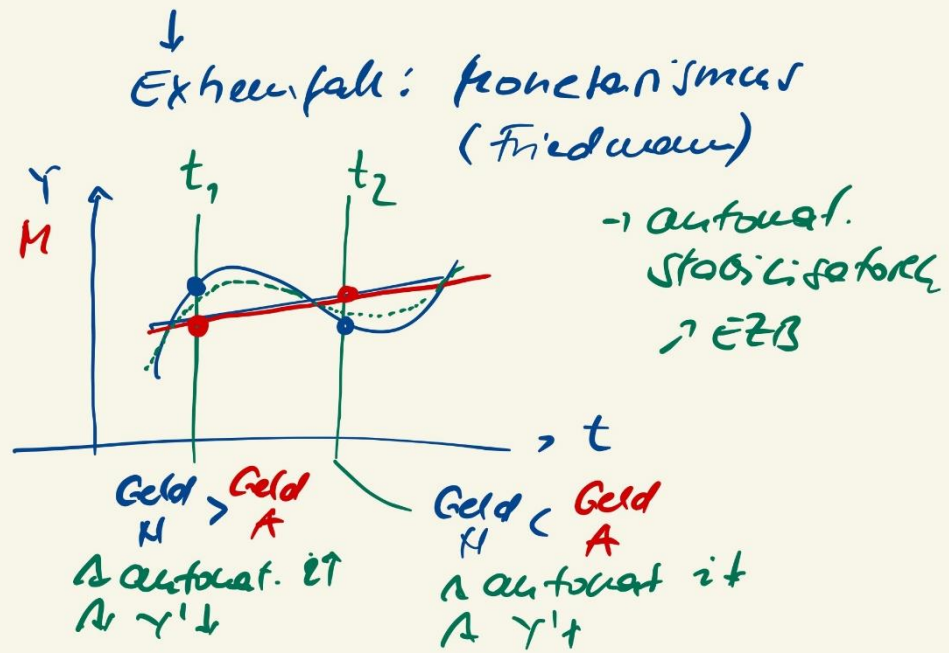 ↓
Extremfall: Monetarismus
(Friedmann)
Y
M
t₁
t₂
→ automat.
Stabilisatoren
↗ EZB
t
Geld N > Geld A
⇒ automat. i↑
⇒ Y'↓
Geld N < Geld A
⇒ automat i↓
⇒ Y'↑